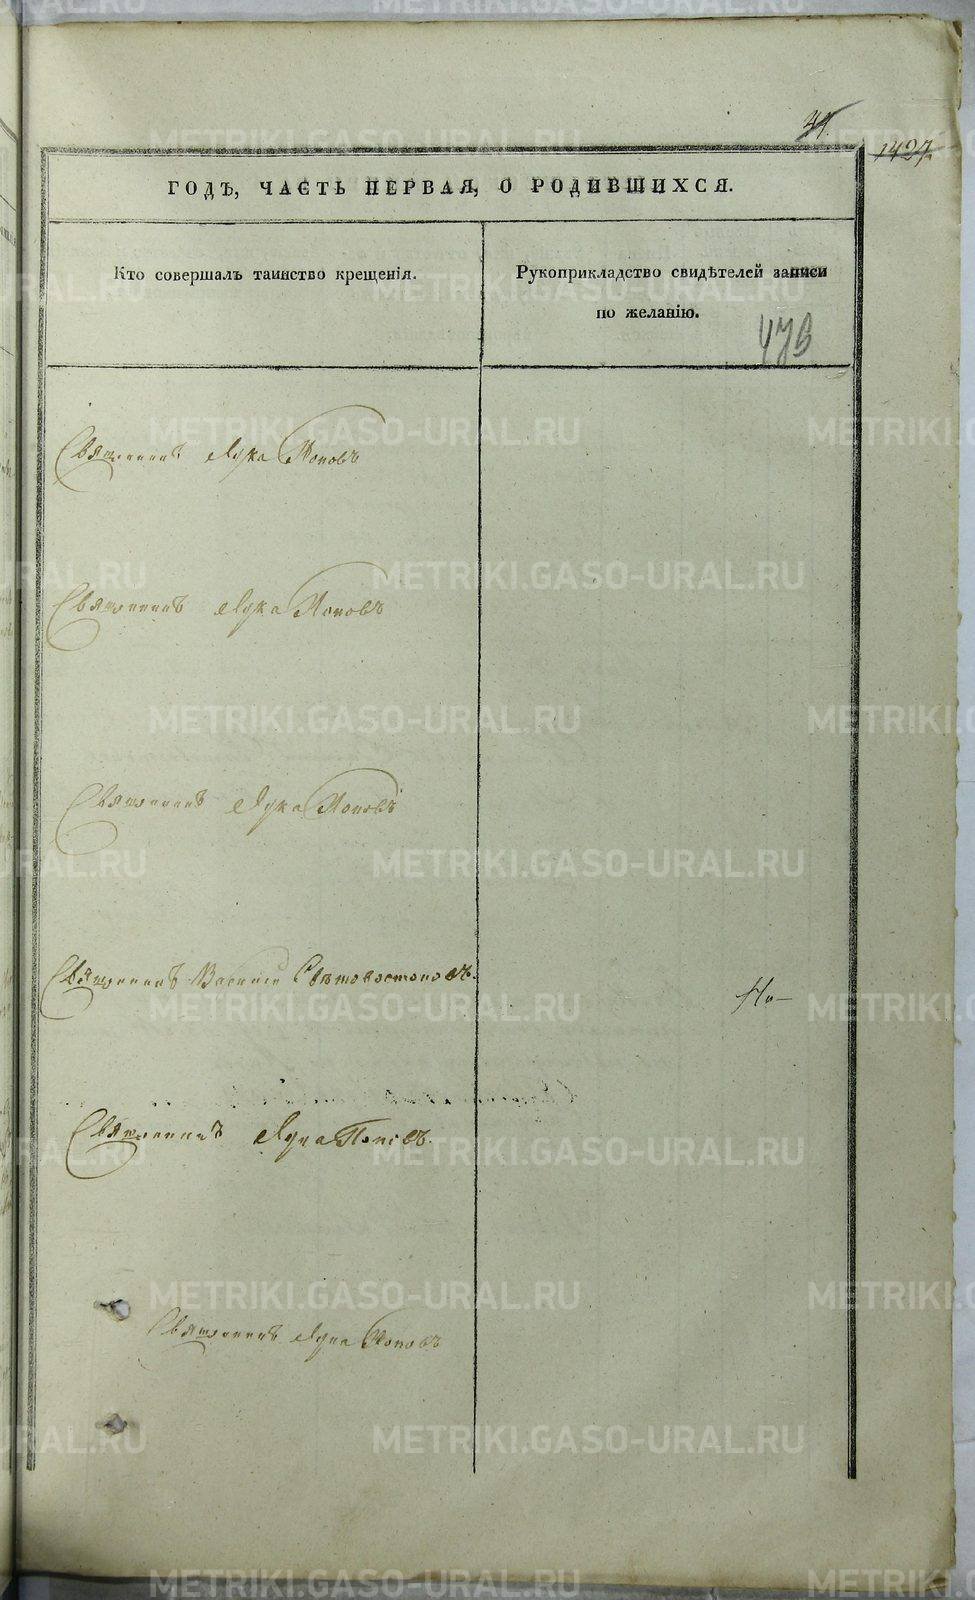 41.
1427.
ГОДЪ, ЧАСТЬ ПЕРВАЯ, О РОДИВШИХСЯ.
Кто совершалъ таинство крещенія.
Рукоприкладство свидѣтелей записи
по желанію.
473
Священникъ Лука Поповъ
Священникъ Лука Поповъ
Священникъ Лука Поповъ
Священникъ Василій Свѣтовостоковъ.
Священникъ Лука Поповъ.
Священникъ Лука Поповъ
METRIKI.GASO-URAL.RU